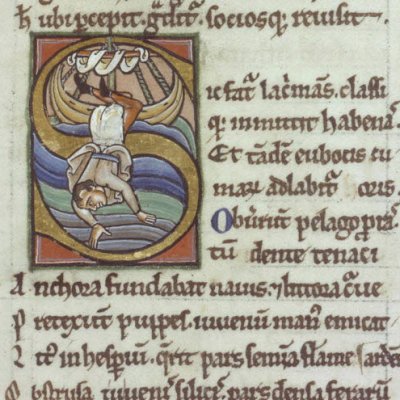 h̄ ubi pcepit. gdit᷑ sociosq; reuisit
Sic fat᷑ lac̾mans. classi
q: inmittit habenas.
Et tādē euboicis cu
marꝝ adlabit᷑ oris.
Obuertunt pelago proras.
tū dente tenaci
Anchora fundabat nauis. ⁊ littora curue
Pretexūt puppes. iuuenū manꝰ emicat
ardens
Litꝰ in hesperiū. querit pars semina flāme
Abstrusa in uenis silicis. pars densa feraru